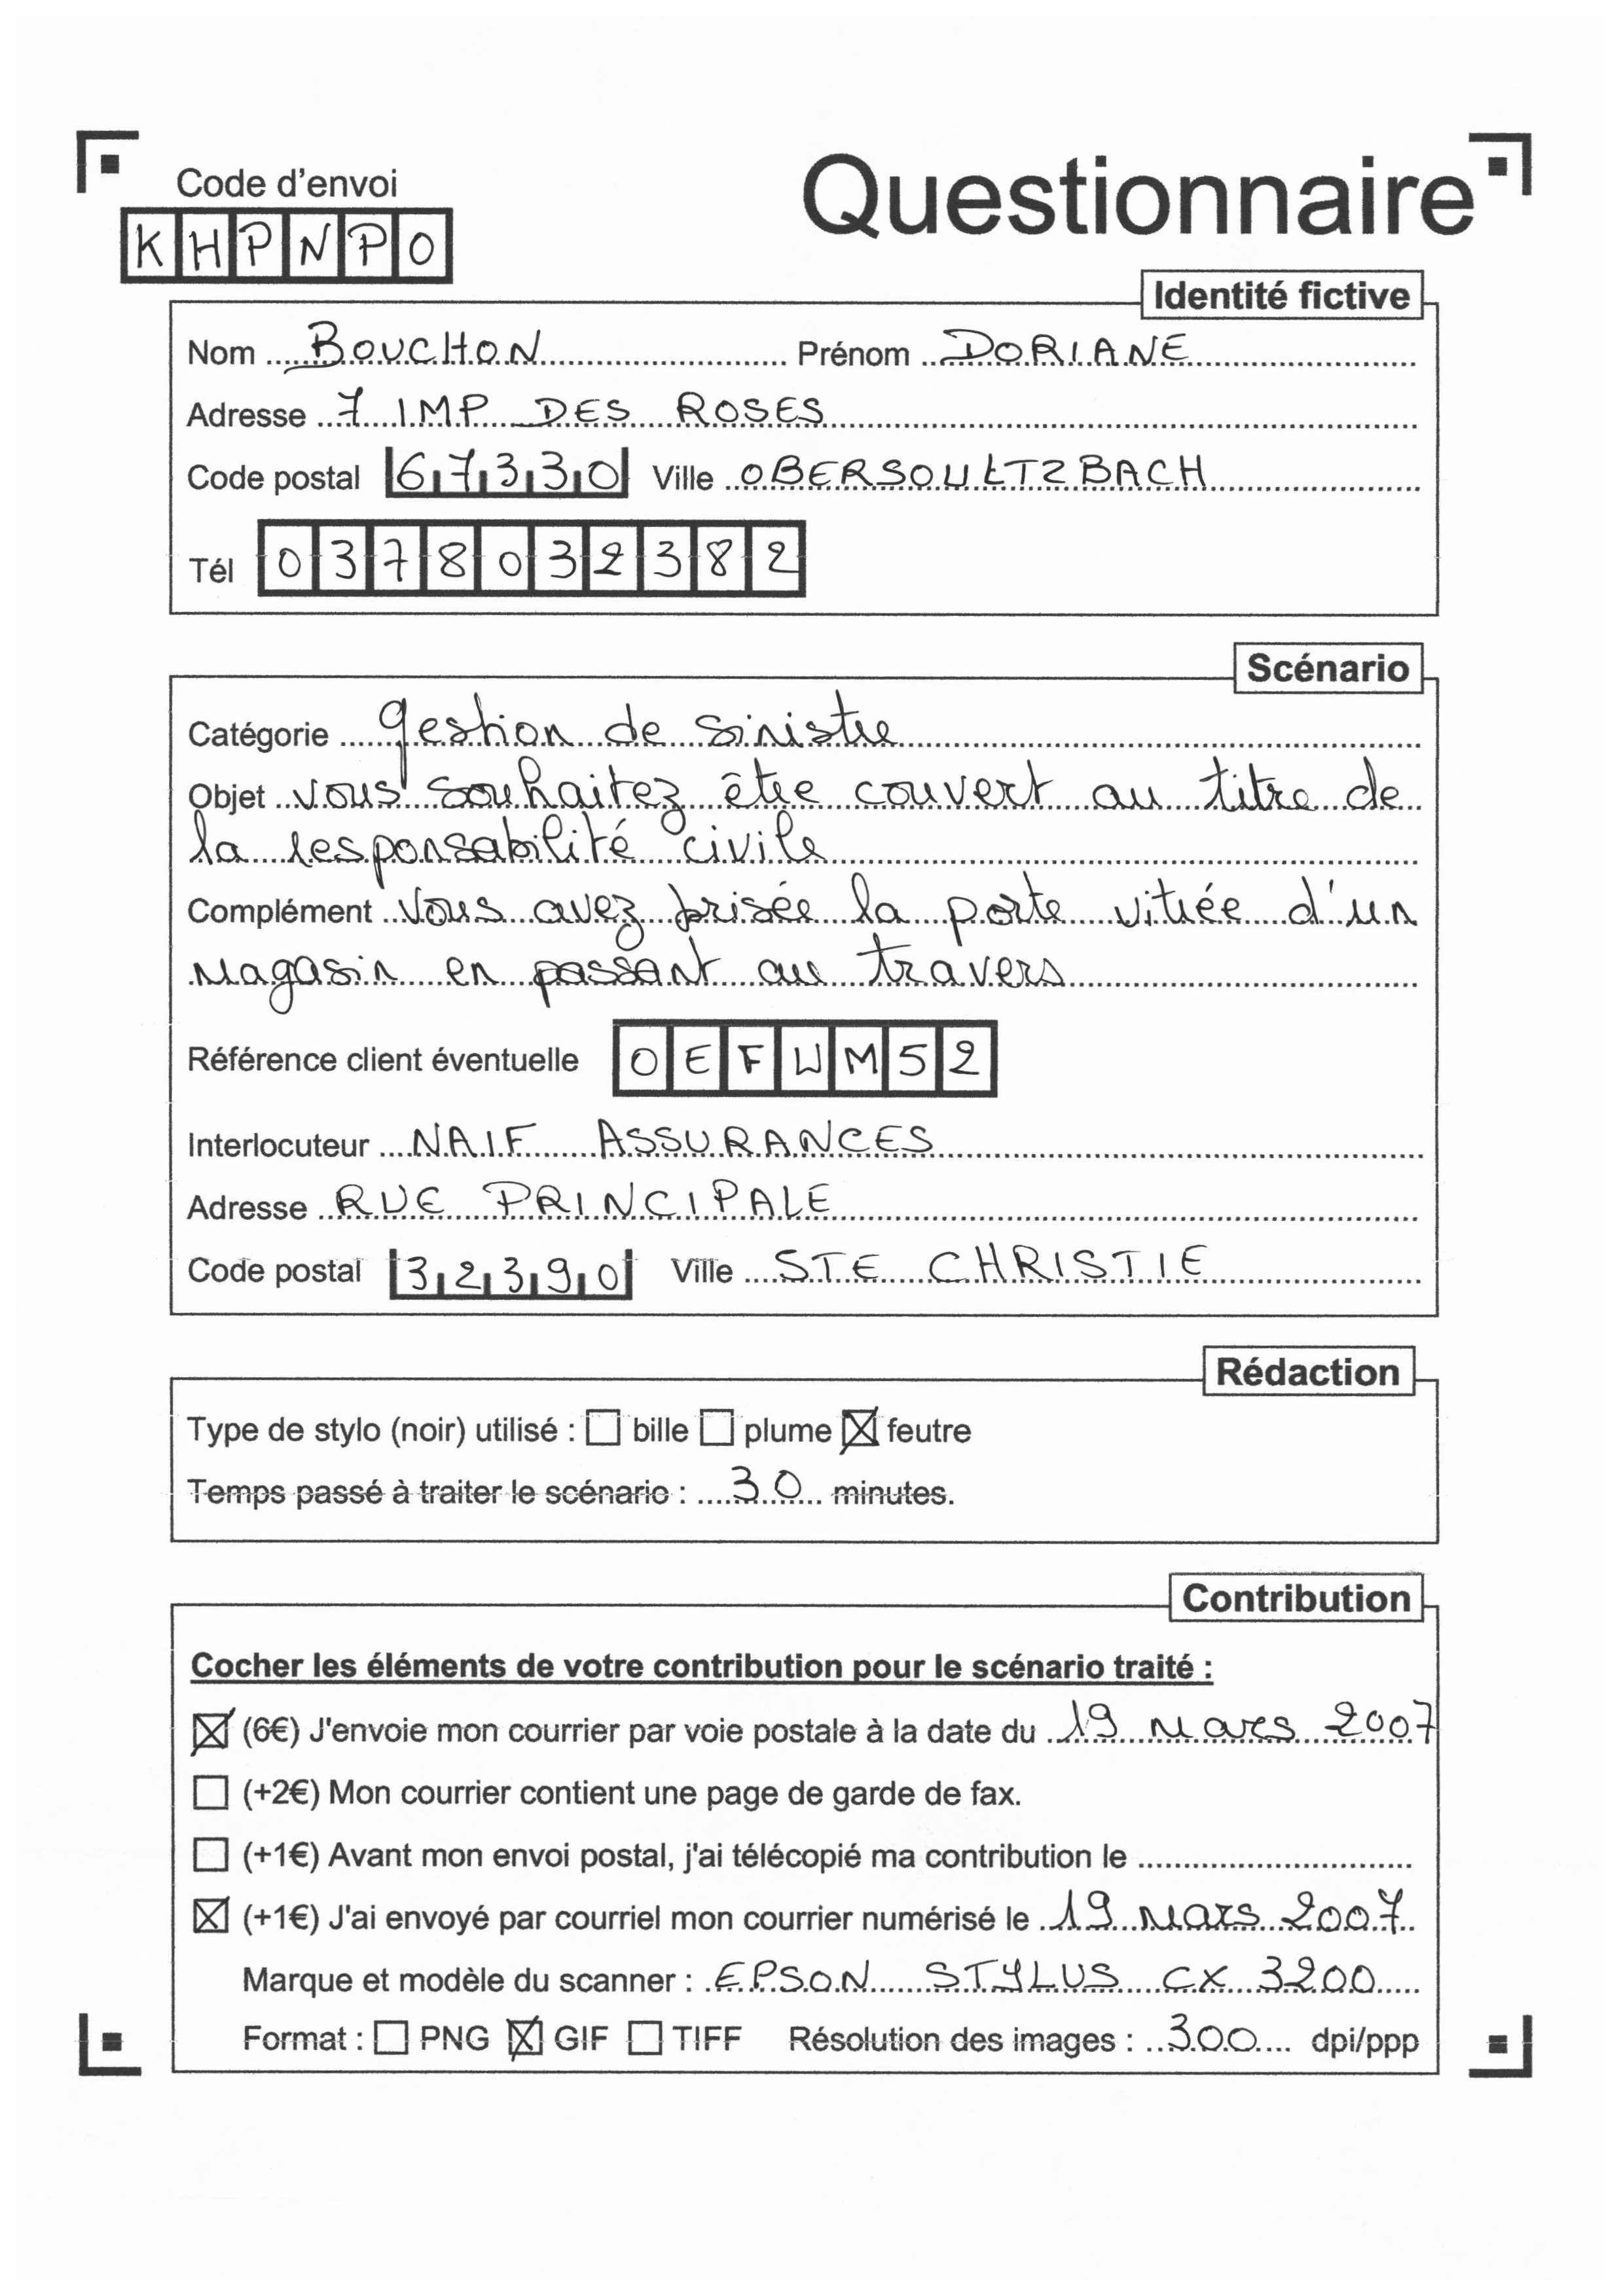 Code d'envoi
Questionnaire
KHPNPO
Identité fictive
Nom BOUCHON Prénom DORIANE
Adresse 7 IMP DES ROSES
Code postal 67330 Ville OBERSOULTZBACH
Tél 0378032382
Scénario
Catégorie gestion de sinistre
Objet vous souhaitez être couvert au titre de
la responsabilité civile
Complément Vous avez brisée la porte vitrée d'un
magasin en passant au travers
Référence client éventuelle OEFWM52
Interlocuteur NAIF ASSURANCES
Adresse RUE PRINCIPALE
Code postal 32390 Ville STE CHRISTIE
Rédaction
Type de stylo (noir) utilisé : ☐ bille ☐ plume ☒ feutre
Temps passé à traiter le scénario : 30 minutes.
Contribution
Cocher les éléments de votre contribution pour le scénario traité :
☒ (6€) J'envoie mon courrier par voie postale à la date du 19 mars 2007
☐ (+2€) Mon courrier contient une page de garde de fax.
☐ (+1€) Avant mon envoi postal, j'ai télécopié ma contribution le
☒ (+1€) J'ai envoyé par courriel mon courrier numérisé le 19 mars 2007
Marque et modèle du scanner : EPSON STYLUS CX 3200
Format : ☐ PNG ☒ GIF ☐ TIFF Résolution des images : 300 dpi/ppp